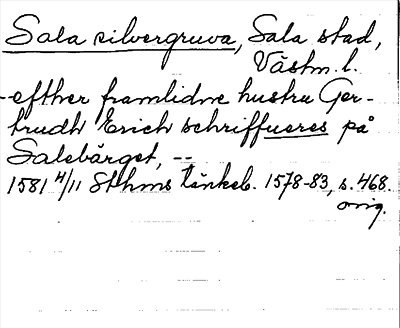 Sala silvergruva, Sala stad,
Västm. l.
-efther framlidne hustru Ger-
trudh Erich schriffueres på
Salebärget, --
1581 4/11 Sthms tänkeb. 1578-83, s. 468.
orig.